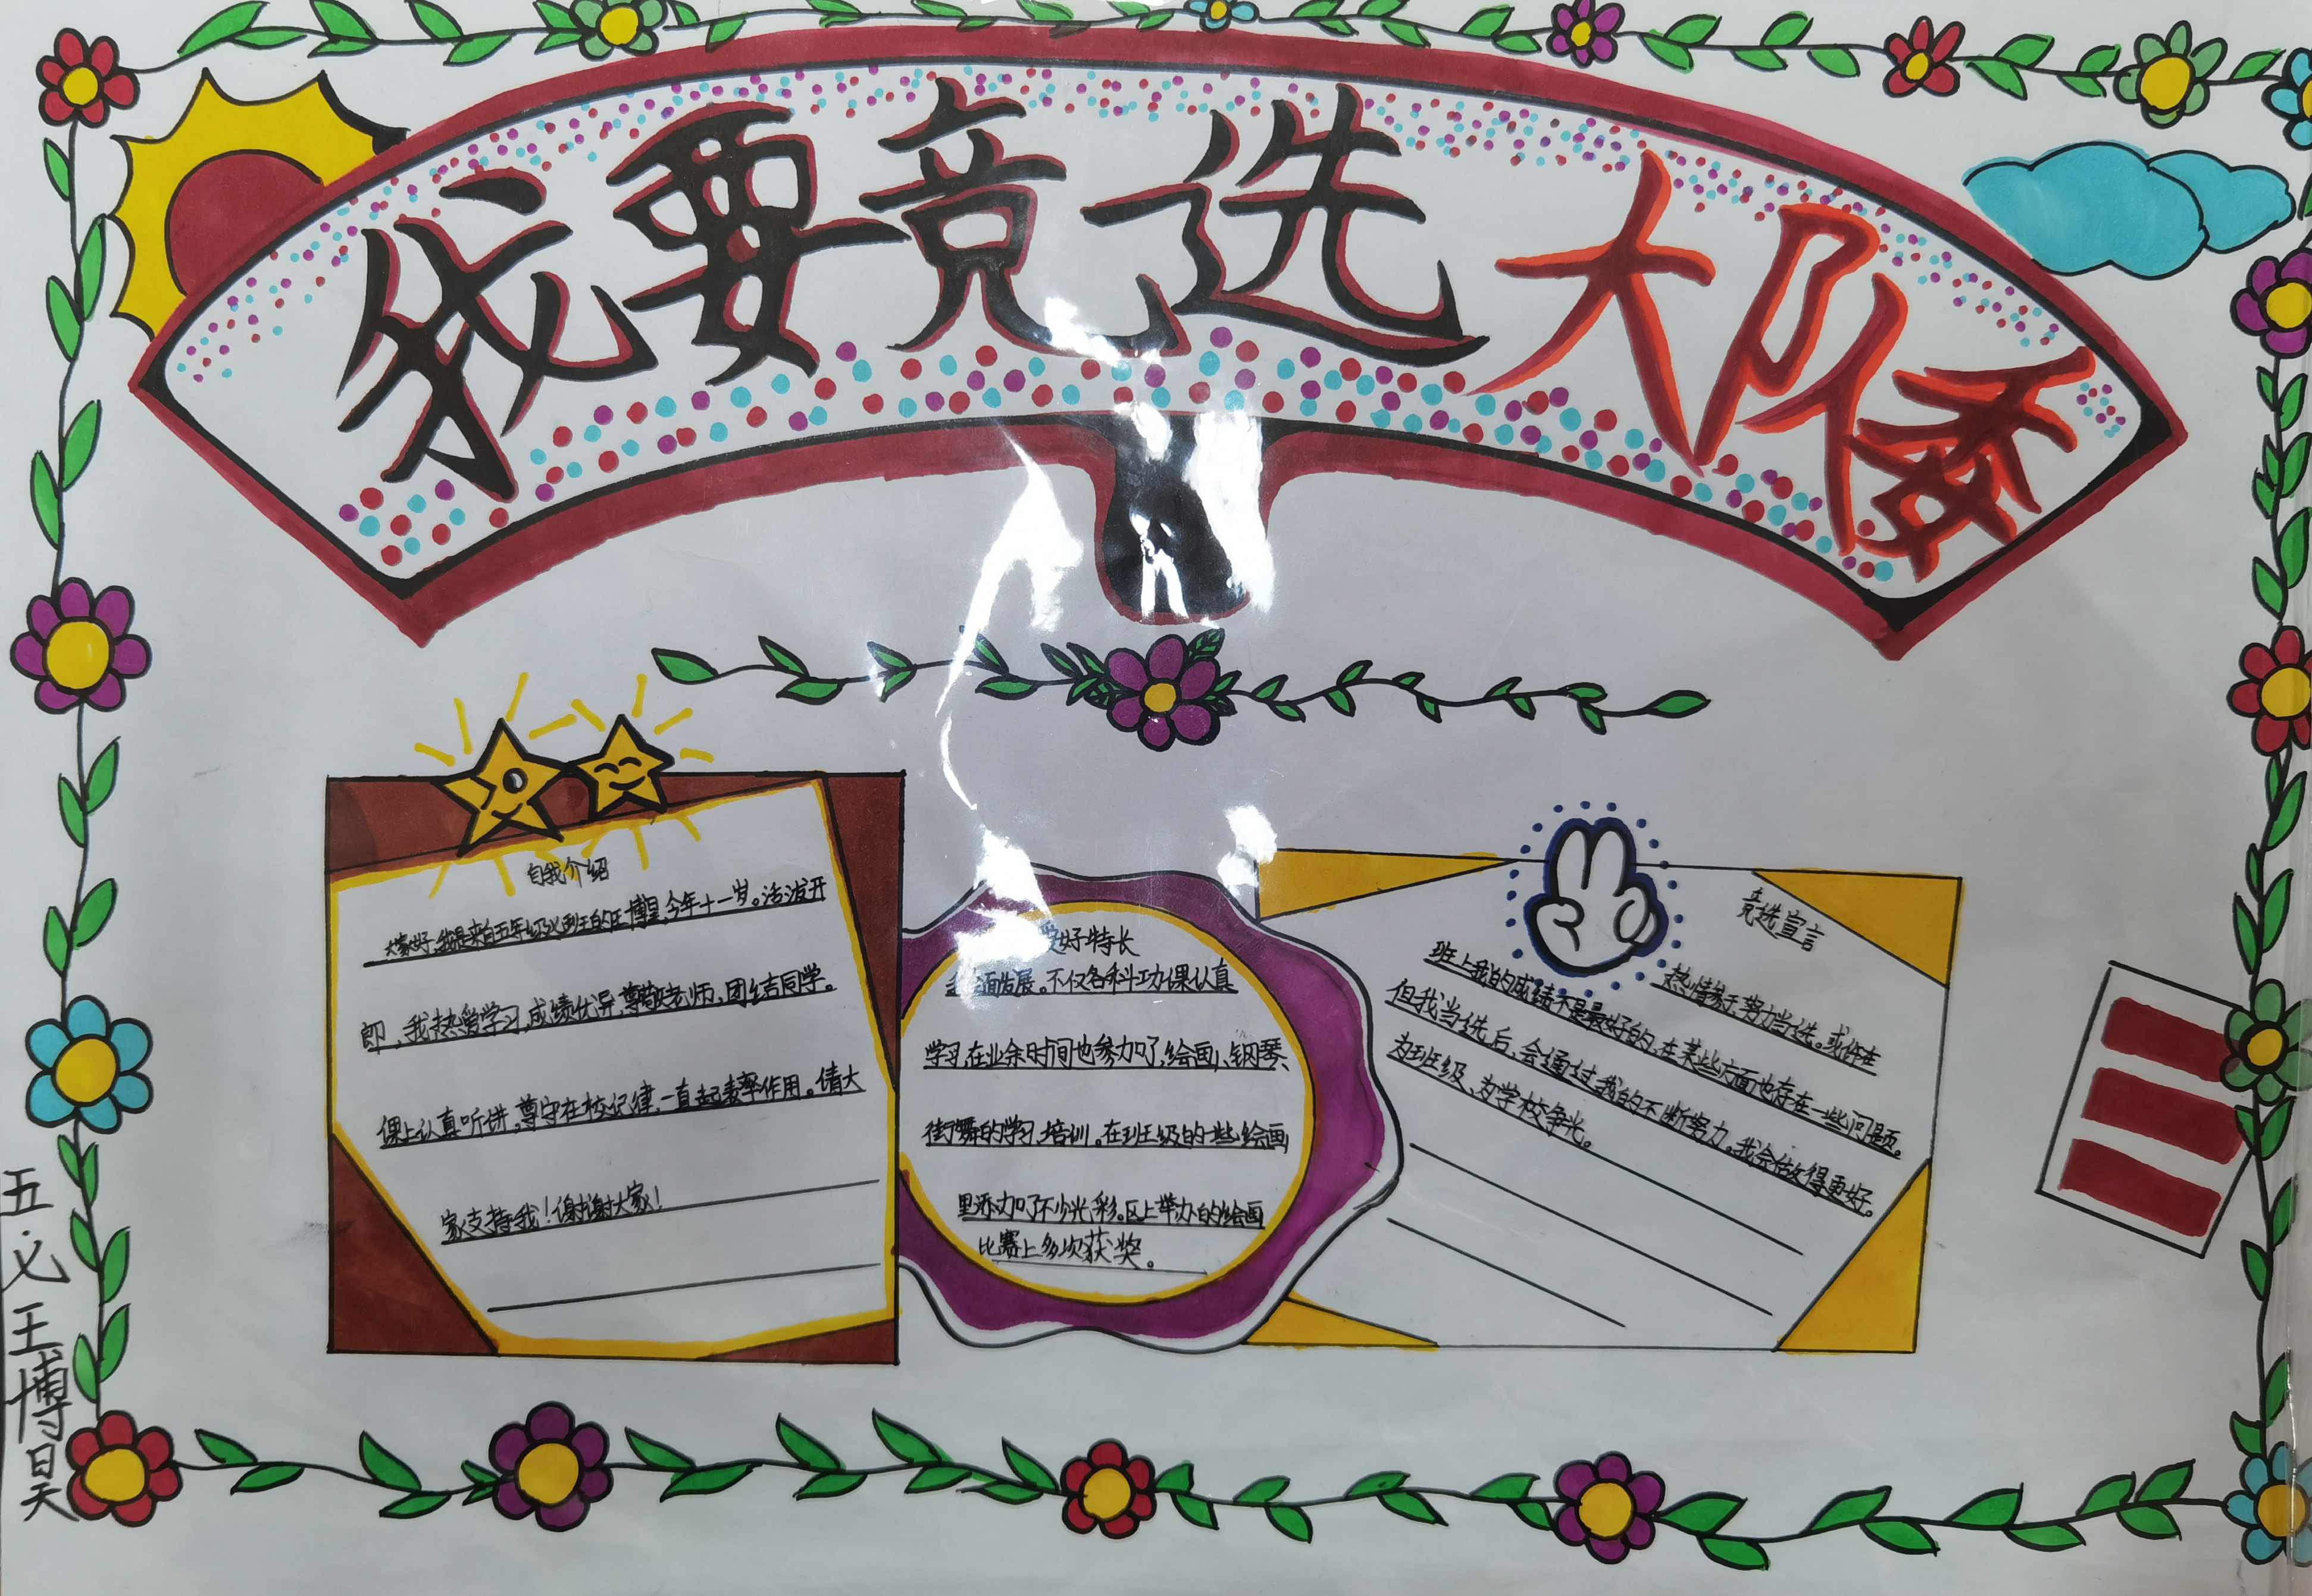 我要竞选大队委
自我介绍
大家好,我是来自五年级义班的王博昊,今年十一岁。活泼开
郎,我热爱学习,成绩优异,尊敬老师,团结同学。
课上认真听讲,尊守在校纪律,一直起表率作用。倩大
家支持我!谢谢大家!
爱好特长
面发展。不仅各科功课认真
学习,在业余时间也参加了,绘画、钢琴、
街舞的学习、培训。在班级的一些绘画
里添加了不少光彩。区上举办的绘画
比赛上多次获奖。
竞选宣言
热情参于,努力当选。或许在
班上我的成绩不是最好的,在某些方面也存在一些问题。
但我当选后,会通过我的不断努力。我会做得更好。
为班级、为学校争光。
五.义 王博昊